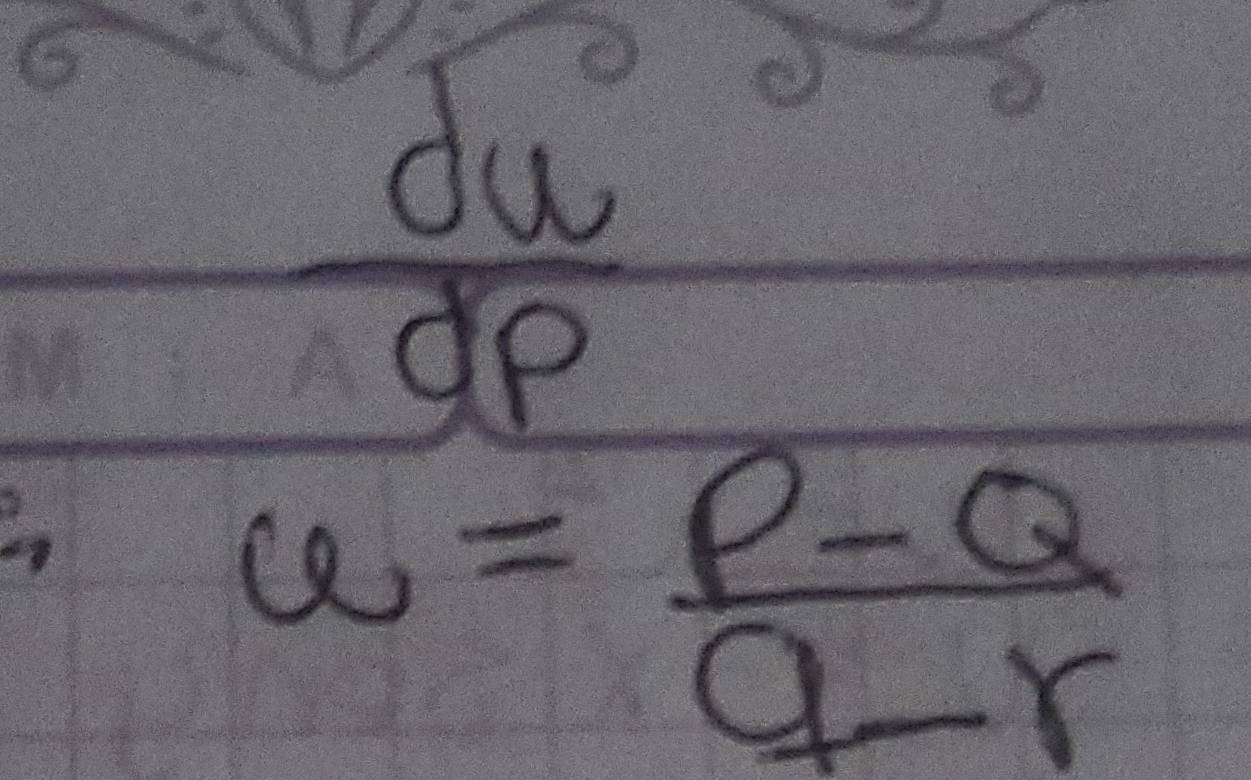 du
dp
u = P - Q
q - r